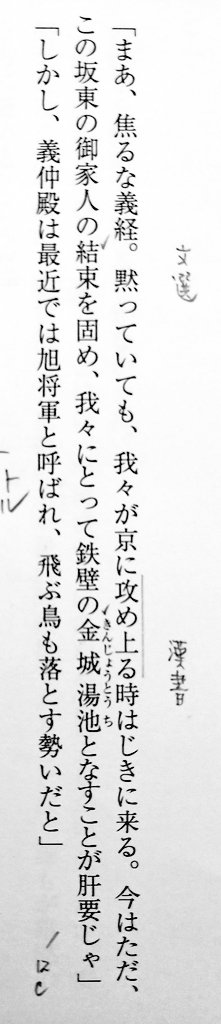 文選
漢書
「まあ、焦るな義経。黙っていても、我々が京に攻め上る時はじきに来る。今はただ、
この坂東の御家人の結束を固め、我々にとって鉄壁の金城湯池となすことが肝要じゃ」
きんじょうとうち
「しかし、義仲殿は最近では旭将軍と呼ばれ、飛ぶ鳥も落とす勢いだと」
トル